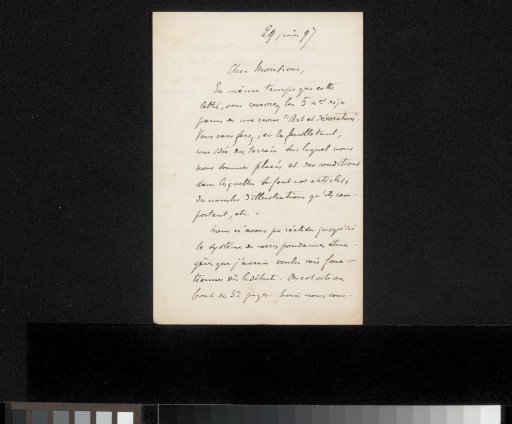 29 juin 97
Cher Monsieur,
En même temps que cette
lettre, vous recevrez les 5 nos déjà
parus de ma revue "Art et Décoration"
Vous vous ferez, en la feuilletant,
une idée du terrain sur lequel nous
nous sommes placés et des conditions
dans lesquelles se font nos articles,
du nombre d'illustrations qu'ils com-
portent, etc.
Nous n'avons pu réaliser jusqu'ici
le système de correspondances étran-
gères que j'aurais voulu voir fonc-
tionner dès le début. On est vite au
bout de 32 pages. Mais nous